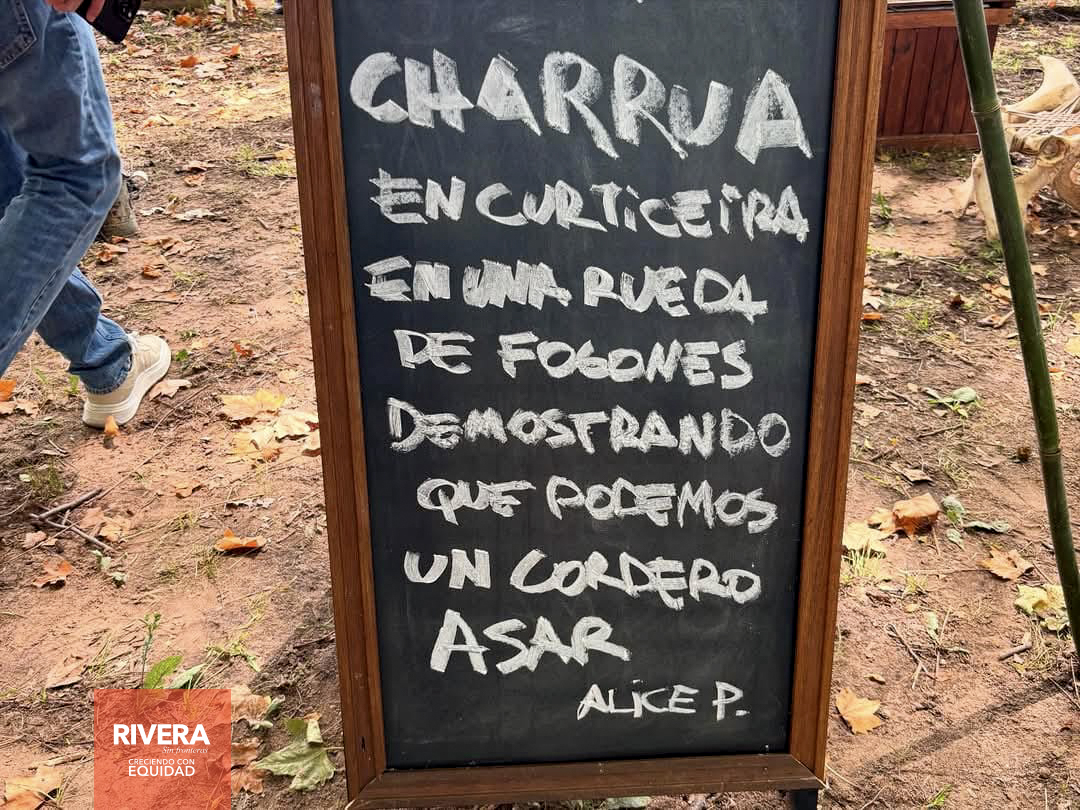 CHARRUA
EN CURTiCEiRA
EN UNA RUEDA
DE FOGONES
DEMOSTRANDO
QUE PODEMOS
UN CORDERO
ASAR
ALiCE P.
RIVERA
Sin fronteras
CRECIENDO CON
EQUIDAD